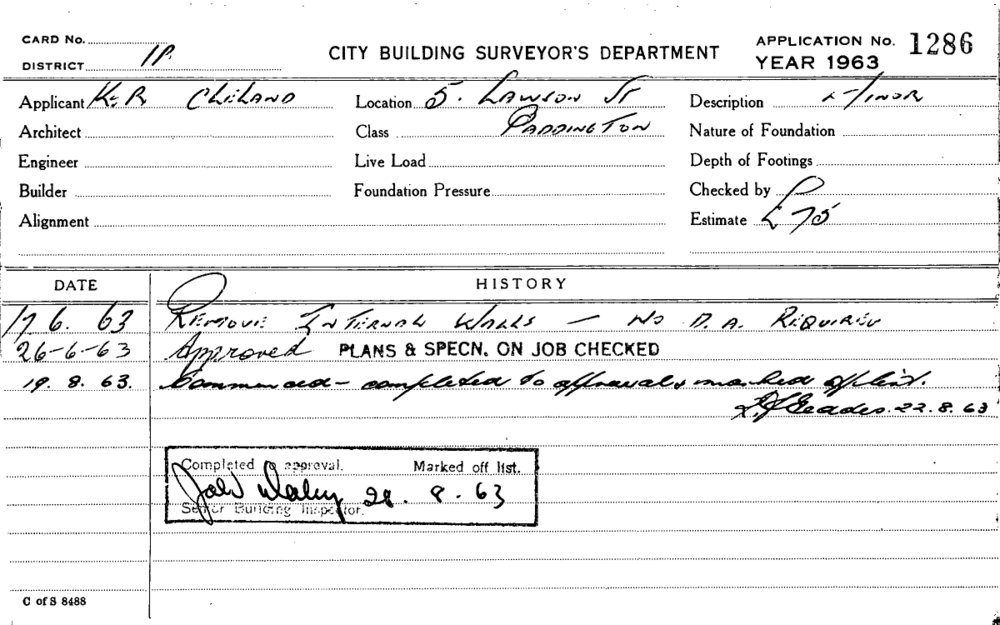 CARD No.
DISTRICT
CITY BUILDING SURVEYOR'S DEPARTMENT
APPLICATION No. 1286
YEAR 1963
Applicant K & R CLELAND Location 5. LAWSON ST Description MINOR
Architect Class PADDINGTON Nature of Foundation
Engineer Live Load Depth of Footings
Builder Foundation Pressure Checked by
Alignment Estimate £75
DATE HISTORY
17 6. 63 REMOVE INTERNAL WALLS — NO D.A. REQUIRED
26-6-63 Approved PLANS & SPECN. ON JOB CHECKED
19. 8. 63. Commenced - completed to approval & marked off list.
22.8.63
Completed to approval. Marked off list.
28. 8. 63
Senior Building Inspector.
C of S 8488